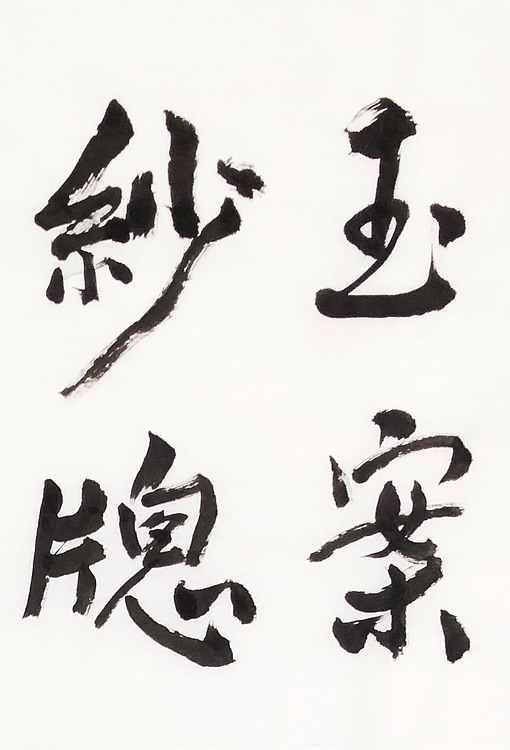 玉案
紗牕